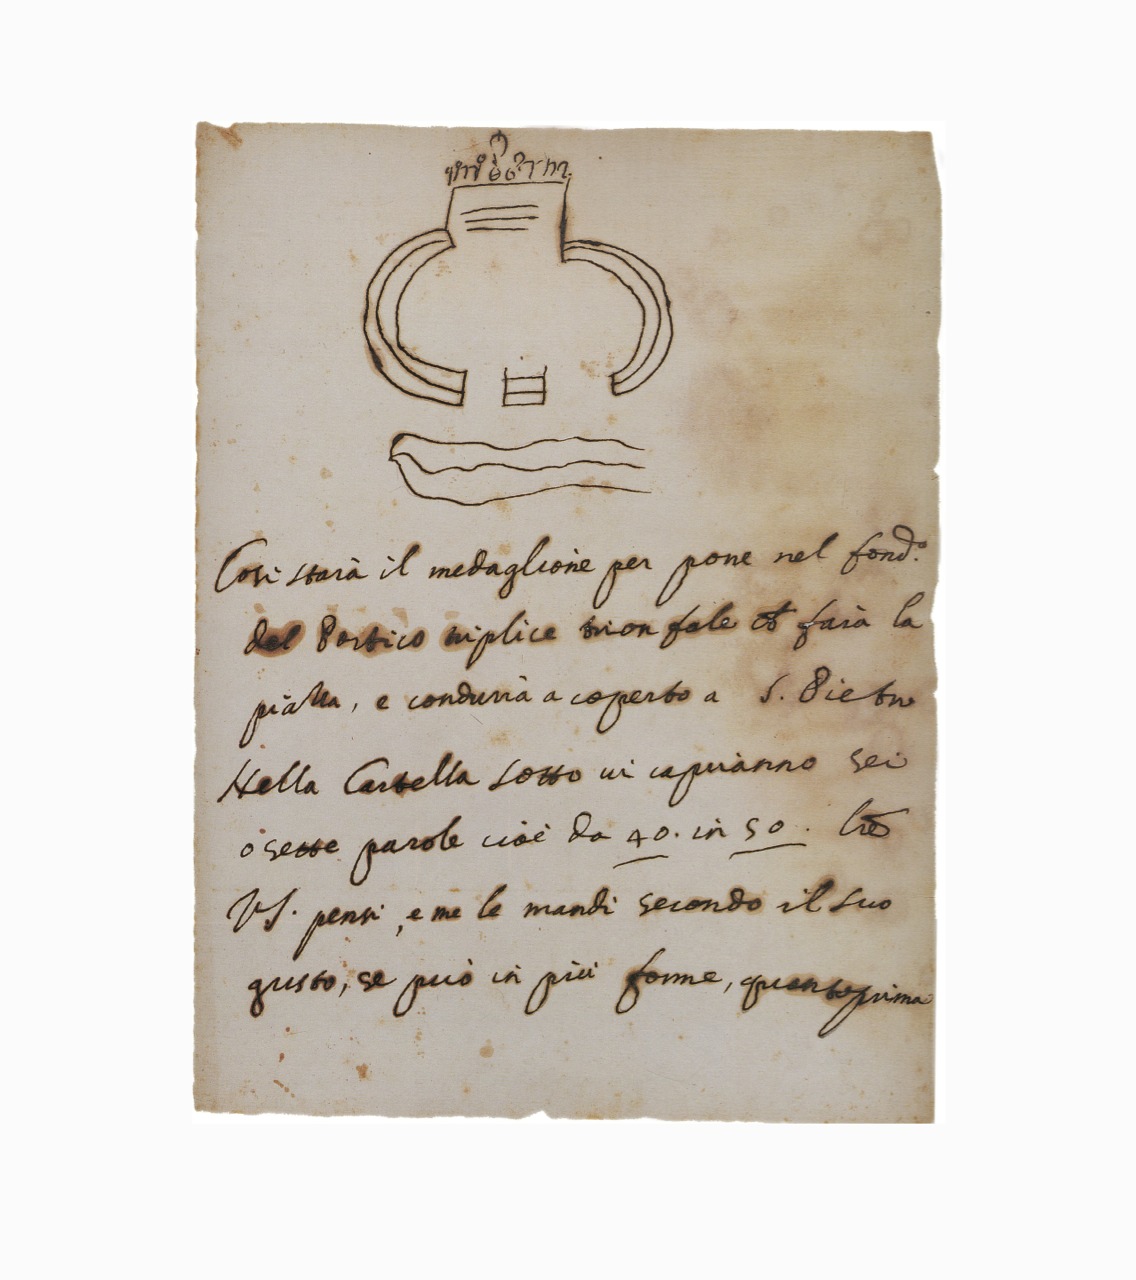 Cosi starà il medaglione per pone nel fond.º
del Portico triplice trionfale ch̃ farà la
piazza, e condurrà a coperto a S. Pietro
Nella Cartella sotto ui capiranno sei
o sette parole cioè da 40. in 50. lr̃e
VS. pensi, e me le mandi secondo il suo
gusto, se può in più forme, quanto prima